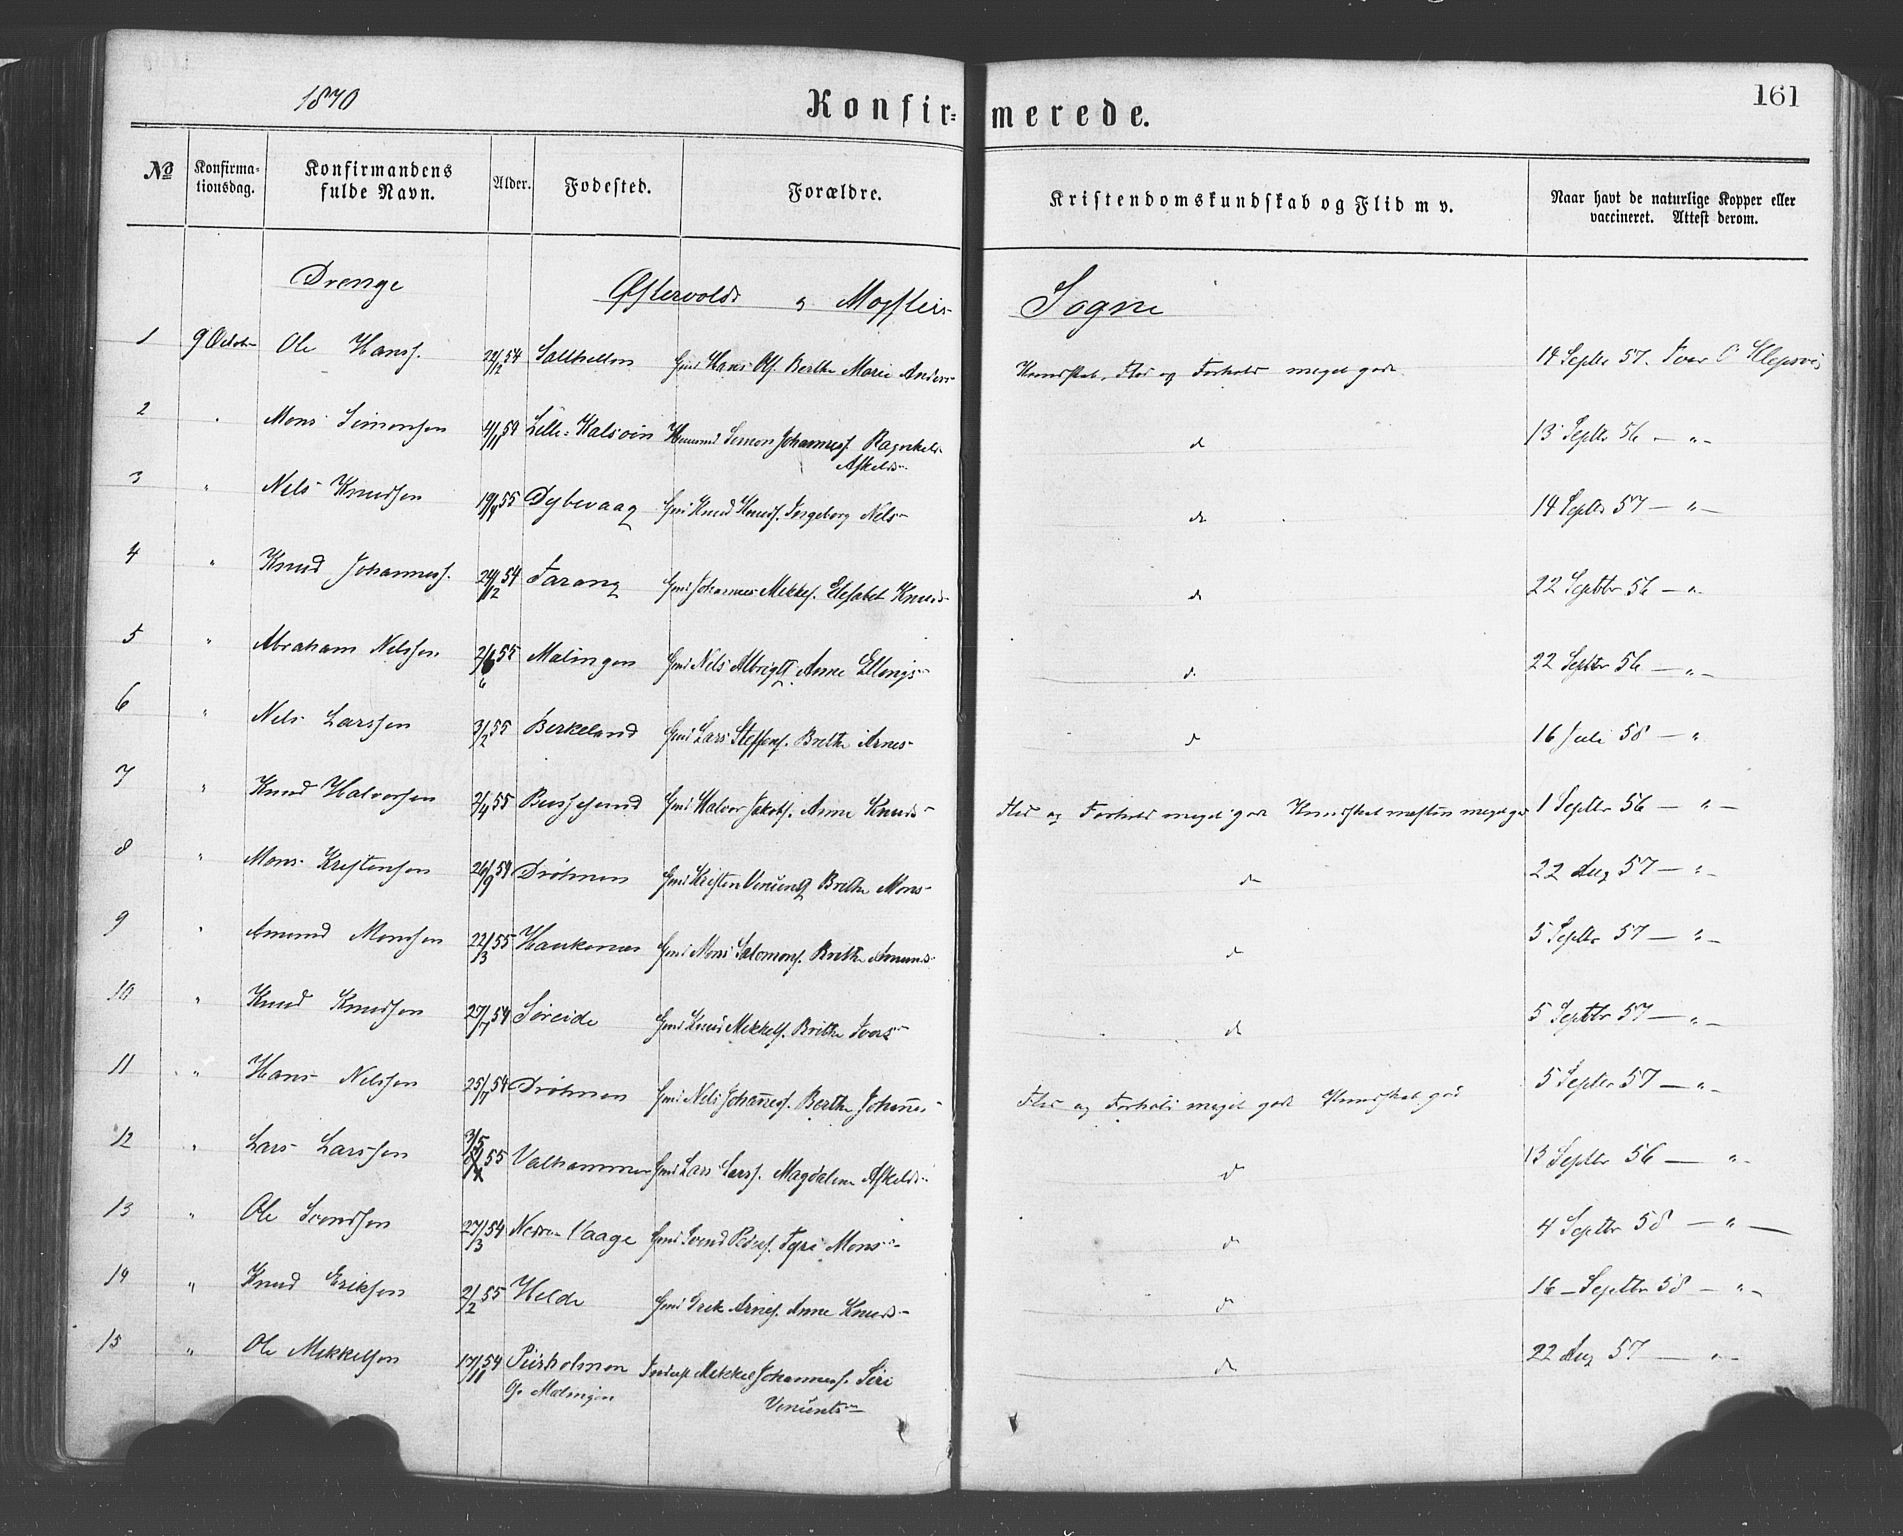 1870
Konfirmerede.
161
No
Konfirmationsdag.
Konfirmandens fulde Navn.
Alder.
Fødested.
Forældre.
Kristendomskundskab og Flid m v.
Naar havt de naturlige Kopper eller vaccineret. Attest derom.
Drenge Østervolds og Møgsters Sogne
1 9 Octobr Ole Hanss. 22/12 54 Salthellen Gmd Hans Ols. Berthe Marie Anders- Kundskab, Flid og Forhold meget godt 14 Septbr 57. Ivar O
2 " Mons Simonsen 4/11 54 Lille-Kalsøin Husmand Simon Johanness. Ragnhild Askelds- do 13 Septbr 56 - " -
3 " Nels Knudsen 19/4 55 Dybevaag Gmd Knud Knuds. Ingeborg Nels- do 14 Septbr 57 - " -
4 " Knud Johanness. 24/12 54 Gmd Johannes Mikkels. Elisabet Knuds- do 22 Septbr 56 - " -
5 " Abraham Nelssen 2/6 55 Malingen Gmd Nels Anne Ellings- do 22 Septbr 56 - " -
6 " Nels Larssen 3/2 55 Berkeland Gmd Lars Steffens. Brithe Arnes- do 16 Juli 58 - "
7 " Knud Halvorsen 2/4 55 Gmd Halvor Jakobs. Anne Knuds- Flid og Forhold meget godt Kundskab næsten meget god 1 Septbr 56 - " -
8 " Mons Kristensen 26/9 54 Drøhmen Gmd Kristen Brithe Mons- do 22 Aug 57 - " -
9 " Amund Monssen 22/3 55 Haukenæs Gmd Mons Salomons. Brithe Amunds- do 5 Septbr 57 - " -
10 " Knud Knudsen 27/7 54 Søreide Gmd Knud Mikkels. Brithe Ivars- do 5 Septbr 57 - " -
11 " Hans Nelssen 25/7 54 Drøhmen Gmd Nels Johañess. Berthe Johañes- Flid og Forhold meget godt Kundskab god 5 Septbr 57 - " -
12 " Lars Larssen 3/5 55 Valhammer Gmd Lars Larss. Magdalene Askelds- do 13 Septbr 56 - " -
13 " Ole Svendsen 27/3 54 Nedre Vaage Gmd Svend Peders. Mons- do 4 Septbr 58 - " -
14 " Knud Eriksen 2/2 55 Helde Gmd Erik Arnes. Anne Knuds- do 16 - Septbr 58 - " -
15 " Ole Mikkelsen 17/11 54 Inderst Mikkel Johanness. Siri do 22 Aug 57 - " -
G. Malingen